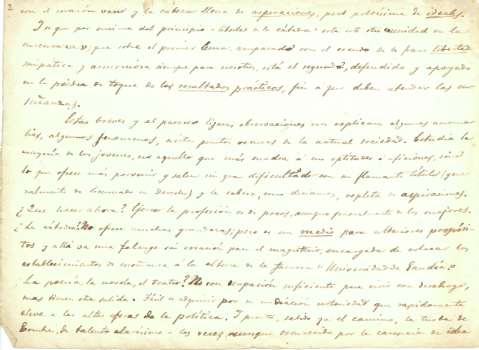 2 con el corazón vano y la cabeza llena de aspiraciones, pero pobrísima de ideales.
Lo que por encima del principio "libertad de la cátedra" está es otro en la
enseñanza y que sobre el primer lema, amparado con el escudo de la frase libertad
simpática y armoniosa siempre para nosotros, está el segundo, defendido y apoyado
en la piedra de toque de los resultados prácticos, fin a que debe atender las en-
señanzas.
Estas breves y al parecer ligeras observaciones nos explican algunas anoma-
lías, algunos fenómenos, ciertos puntos oscuros de la actual sociedad. Estudia la
mayoría de los jóvenes, no aquello que más cuadra a sus aptitudes o aficiones, sino
lo que ofrece más porvenir y salen sin gran dificultad con su flamante título (gene-
ralmente de licenciado en derecho) y la cabeza, como decíamos, repleta de aspiraciones.
¿Qué hacer ahora? Ejercer la profesión es de pocos, aunque generalmente de los mejores.
¿La cátedra? No ofrece muchas ganancias, pero es un medio para ulteriores propósi-
tos y allá va una falange sin vocación para el magisterio, encargada de colocar los
establecimientos de enseñanza a la altura de la famosa "Universidad de Gandía".
La poesía, la novela, el teatro? No son ocupación suficiente para vivir con desahogo,
mas tienen otra salida: fácil es adquirir por su mediación notoriedad que rápidamente
eleve a las altas esferas de la política. Y pronto, sabido ya el camino, la turba de
hombres, de talento clarísimo a las veces, aunque oscurecido por la carencia de idea-